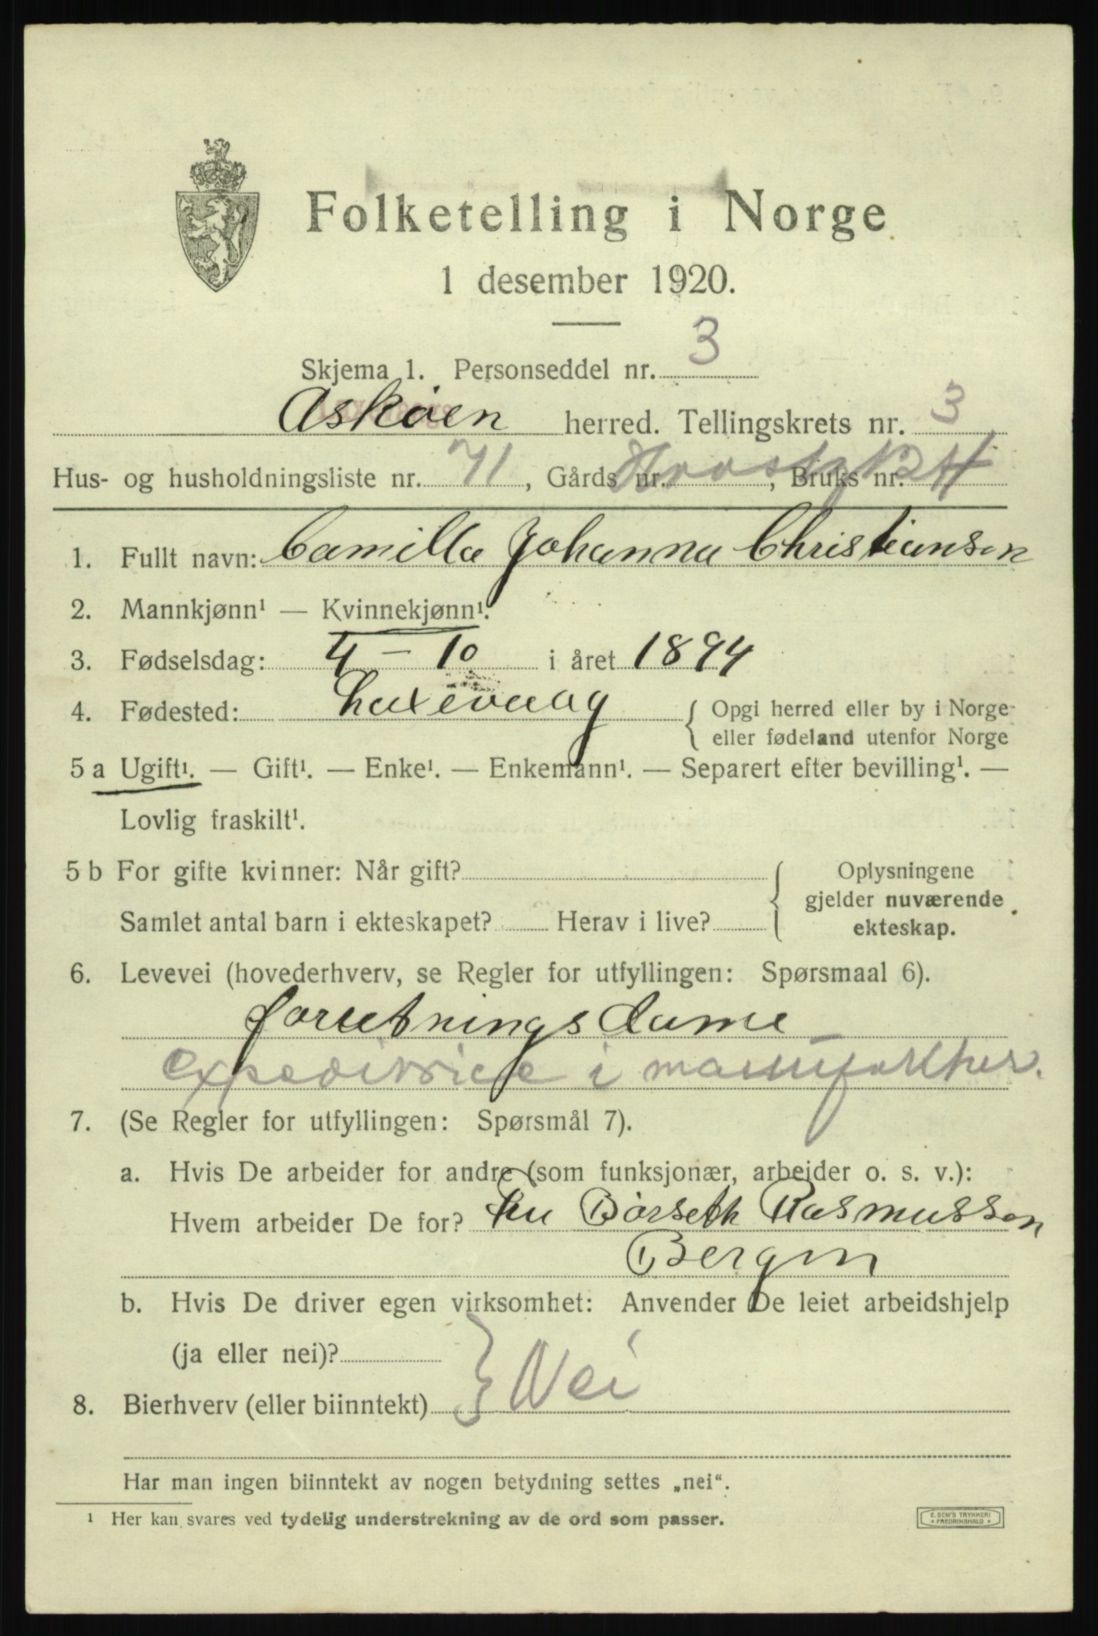 Folketelling i Norge
1 desember 1920.
Skjema 1. Personseddel nr. 3
Askøen herred. Tellingskrets nr. 3
Hus- og husholdningsliste nr. 71, Gårds nr. , Bruks nr.
1. Fullt navn: Camilla Johanna Christiansen
2. Mannkjønn¹ — Kvinnekjønn¹.
3. Fødselsdag: 4 – 10 i året 1894
4. Fødested: Laxevaag { Opgi herred eller by i Norge
eller fødeland utenfor Norge
5 a Ugift¹. — Gift¹. — Enke¹. — Enkemann¹. — Separert efter bevilling¹. —
Lovlig fraskilt¹.
5 b For gifte kvinner: Når gift? { Oplysningene
gjelder nuværende
Samlet antal barn i ekteskapet? Herav i live? ekteskap.
6. Levevei (hovederhverv, se Regler for utfyllingen: Spørsmaal 6).
foretningsdame
expeditrice i manufaktur.
7. (Se Regler for utfyllingen: Spørsmål 7).
a. Hvis De arbeider for andre (som funksjonær, arbeider o. s. v.):
Hvem arbeider De for? Børseth Rasmussen
Bergen
b. Hvis De driver egen virksomhet: Anvender De leiet arbeidshjelp
(ja eller nei)?
8. Bierhverv (eller biinntekt) } Nei
Har man ingen biinntekt av nogen betydning settes „nei“.
¹ Her kan svares ved tydelig understrekning av de ord som passer.
E. SEM'S TRYKKERI
• FREDRIKSHALD •